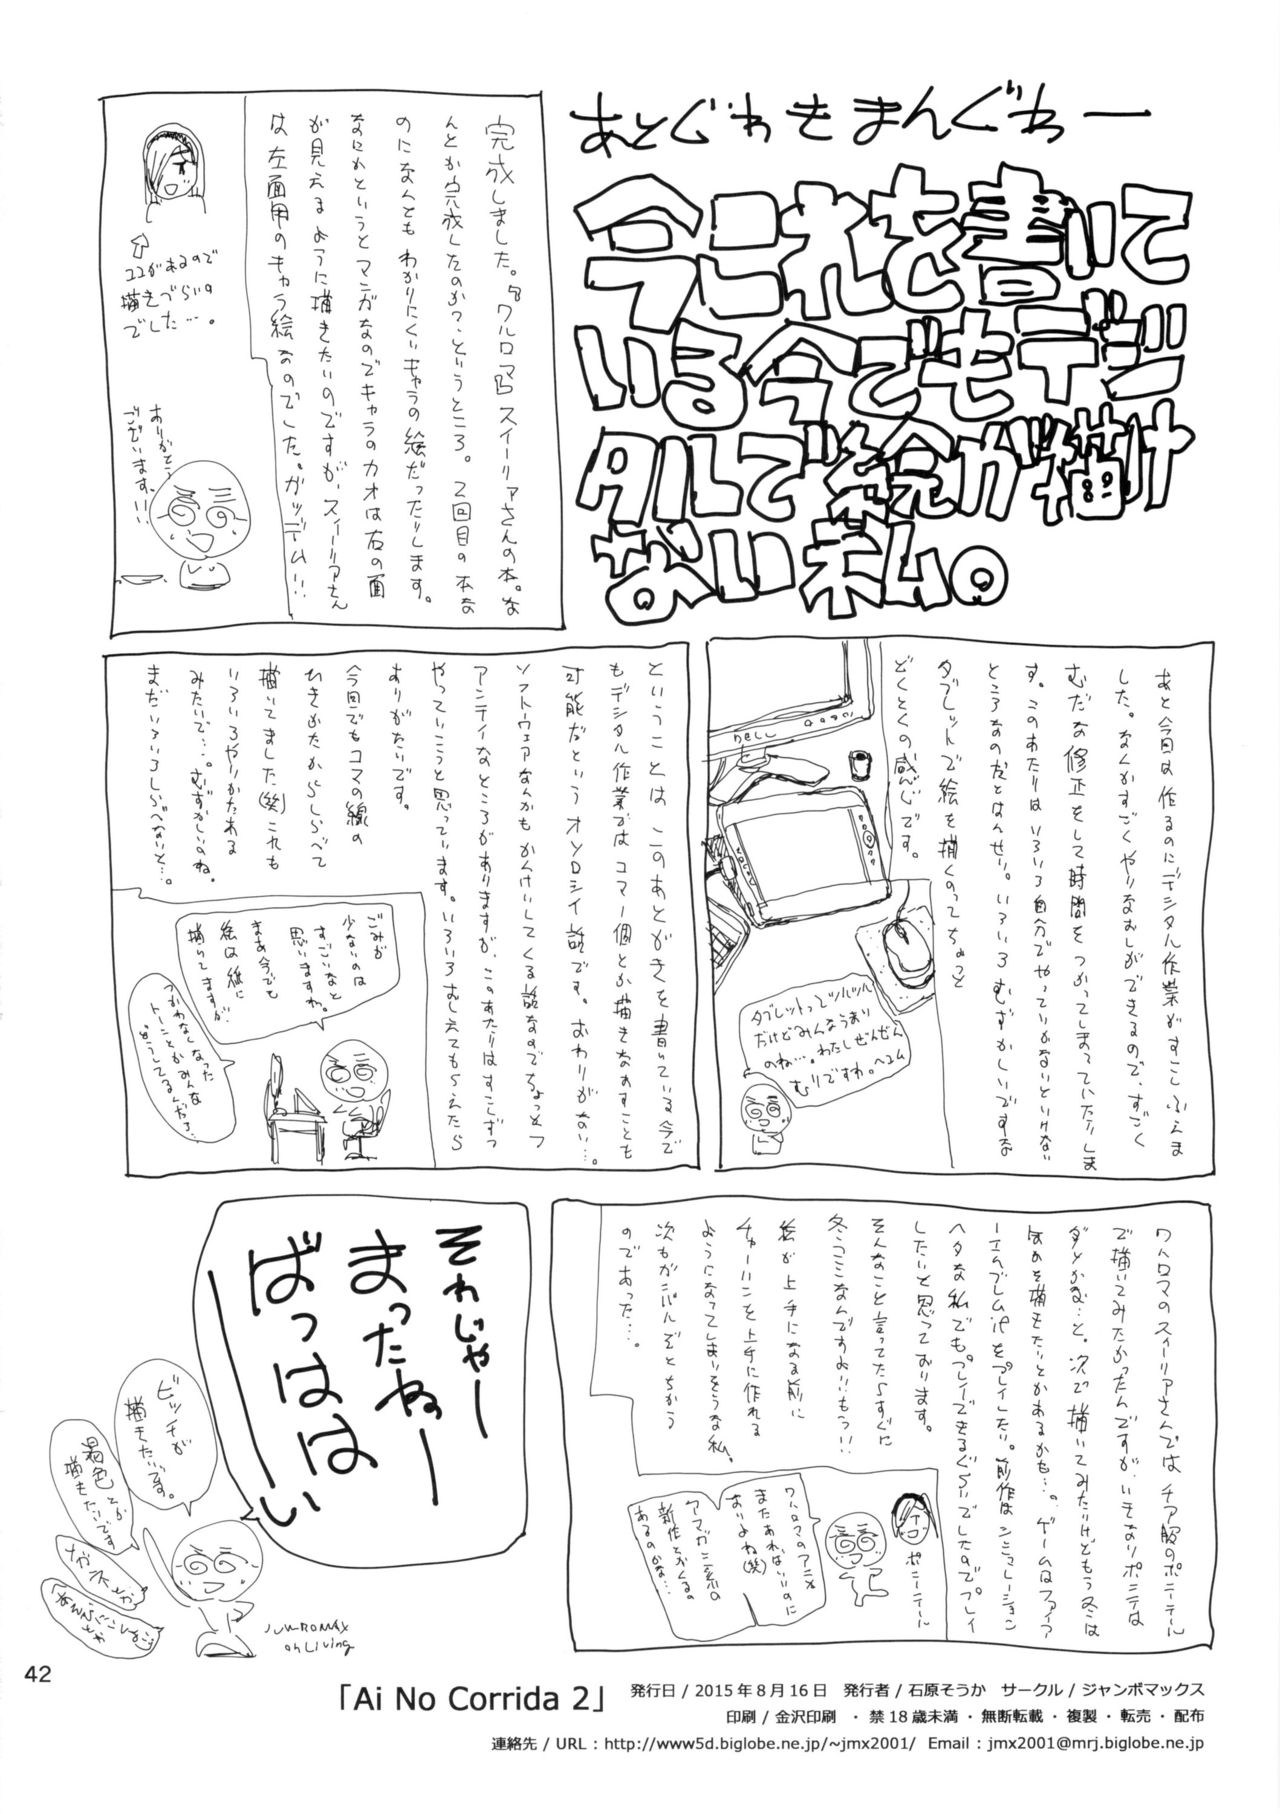 あとじゅわもまんぐわー
今これを書いて
いる今でもデジ
タルで絵が描け
ない私。
完成しました。『ワルロマ』スイーリアさんの本。な
んとか完成したのかっ、というところ。2回目の本な
のになんともわかりにくいキャラの絵だったりします。
なにかというとマンガなのでキャラのカオは右の面
が見えるように描きたいのですが、スイーリアさん
は左面用のキャラ絵なのでした。ガッデーム!!!
ココがあるので
描きづらいの
でした…。
ありがとう
ございます!!!
あと今回は作るのにデジタル作業がすこしふえま
した。なんかすごくやりなおしができるので、すごく
むだな修正をして時間をつかってしまっていたりしま
す。このあたりはいろいろ自分でやっていかないといけない
ところなのだとはんせい。いろいろむずかしいですな
タブレットで絵を描くのってちょっと
どくとくの感じです。
DELL
タブレットってツルツル
だけどみんなうまい
のね…。わたしぜんぜん
むりですわ。ヘコム
ということは このあとがきを書いている今で
もデジタル作業では コマ一個とか描きなおすことも
可能だというオソロシイ話です。おわりがない…。
ソフトウェアなんかもかんけいしてくる話なのでちょっとフ
アンティなところがありますが、このあたりはすこしずつ
やっていこうと思っています。いろいろおしえてもらえたら
ありがたいです。
今回でもコマの線の
ひきかたからしらべて
描いてました(笑)これも
いろいろやりかたある
みたいで…。むずかしいのね。
まだいろいろしらべないと…。
ごみが
少ないのは
すごいなと
思いますね。
まあ今でも
絵は紙に
描いてますが
つかわなくなった
トーンとかみんな
どうしてるんだろ…
ワルロマのスイーリアさんでは チア服のポニーテール
で描いてみたかったんですが、いきなりポニテは
ダメかな…と。次で描いてみたいけどもう冬は
なのを描きたいとかあるかも…。ゲームはファイア
ーエムブレムifをプレイしたい。前作はシミュレーション
ヘタな私でもプレイできるぐらいでしたのでプレイ
したいと思っております。
そんなこと言ってたらすぐに
冬コミなんですよ!!もうっ!!!
絵が上手になる前に
チャーハンを上手に作れる
ようになってしまいそうな私。
次もガンバルぞとちかう
のであった…。
ポニーテール
ワルロマのアニメ
またあればいいのに
おりよね(笑)
アマガミ系の
新作とかくるの
あるのかな…
それじゃー
まったねー
ばっはは
ーい
ビッチが
描きたいです。
褐色とか
描きたいです
メガネとか
JUMBOMAX
on Living
42
「Ai No Corrida 2」
発行日 / 2015年8月16日　発行者 / 石原そうか　サークル / ジャンボマックス
印刷 / 金沢印刷　・禁18歳未満・無断転載・複製・転売・配布
連絡先 / URL : http://www5d.biglobe.ne.jp/~jmx2001/　Email : jmx2001@mrj.biglobe.ne.jp